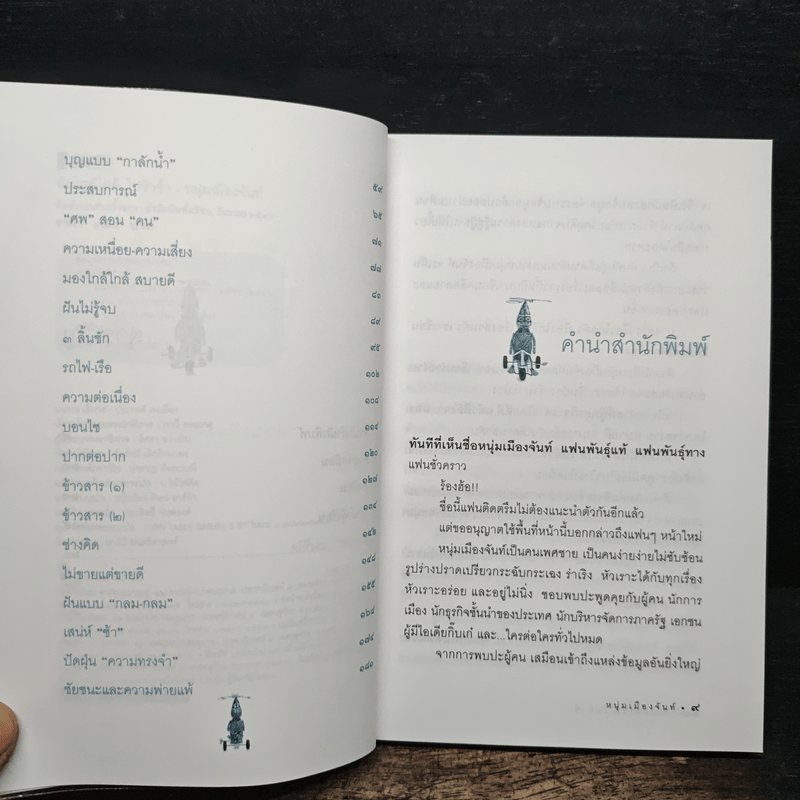 บุญแบบ “กาลักน้ำ” ๕๙
ประสบการณ์ ๖๕
“ศพ” สอน “คน” ๗๑
ความเหนื่อย-ความเสี่ยง ๗๗
มองใกล้ใกล้ สบายดี ๘๓
ฝันไม่รู้จบ ๘๙
๓ ลิ้นชัก ๙๕
รถไฟ-เรือ ๑๐๒
ความต่อเนื่อง ๑๐๘
บอนไซ ๑๑๔
ปากต่อปาก ๑๒๐
ข้าวสาร (๑) ๑๒๘
ข้าวสาร (๒) ๑๓๔
ช่างคิด ๑๔๒
ไม่ขายแต่ขายดี ๑๔๘
ฝันแบบ “กลม-กลม” ๑๕๕
เสน่ห์ “ช้า” ๑๖๘
ปัดฝุ่น “ความทรงจำ” ๑๗๔
ชัยชนะและความพ่ายแพ้ ๑๘๑
คำนำสำนักพิมพ์
ทันทีที่เห็นชื่อหนุ่มเมืองจันท์ แฟนพันธุ์แท้ แฟนพันธุ์ทาง
แฟนชั่วคราว
ร้องอ้อ!!
ชื่อนี้แฟนติดตรึมไม่ต้องแนะนำตัวกันอีกแล้ว
แต่ขออนุญาตใช้พื้นที่หน้านี้บอกกล่าวถึงแฟนๆ หน้าใหม่
หนุ่มเมืองจันท์เป็นคนเพศชาย เป็นคนง่ายง่ายไม่ซับซ้อน
รูปร่างปราดเปรียวกระฉับกระเฉง ร่าเริง หัวเราะได้กับทุกเรื่อง
หัวเราะอร่อย และอยู่ไม่นิ่ง ชอบพบปะพูดคุยกับผู้คน นักการ
เมือง นักธุรกิจชั้นนำของประเทศ นักบริหารจัดการภาครัฐ เอกชน
ผู้มีไอเดียกิ๊บเก๋ และ...ใครต่อใครทั่วไปหมด
จากการพบปะผู้คน เสมือนเข้าถึงแหล่งข้อมูลอันยิ่งใหญ่
หนุ่มเมืองจันท์ • ๙